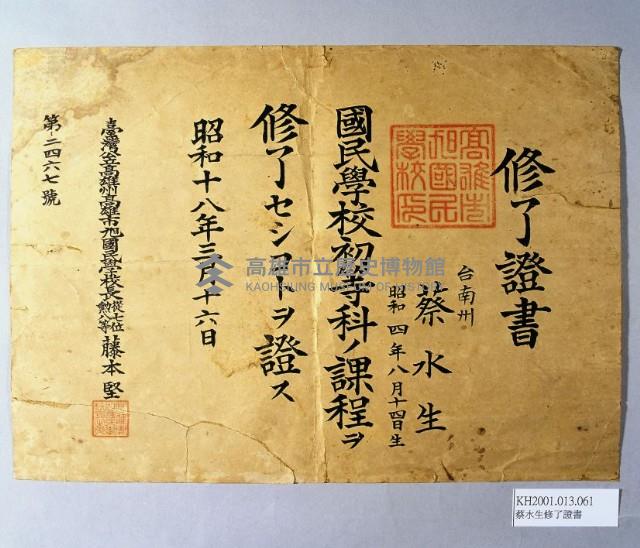 修了證書
高雄市
旭國民
學校印
台南州
蔡水生
昭和四年八月十四日生
國民學校初等科ノ課程ヲ
修了セシコトヲ證ス
昭和十八年三月十六日
臺灣公立高雄州高雄市旭國民學校長從七位勲八等藤本堅
第一二四六七號
高雄市立歷史博物館
KAOHSIUNG MUSEUM OF HISTORY
KH2001.013.061
蔡水生修了證書